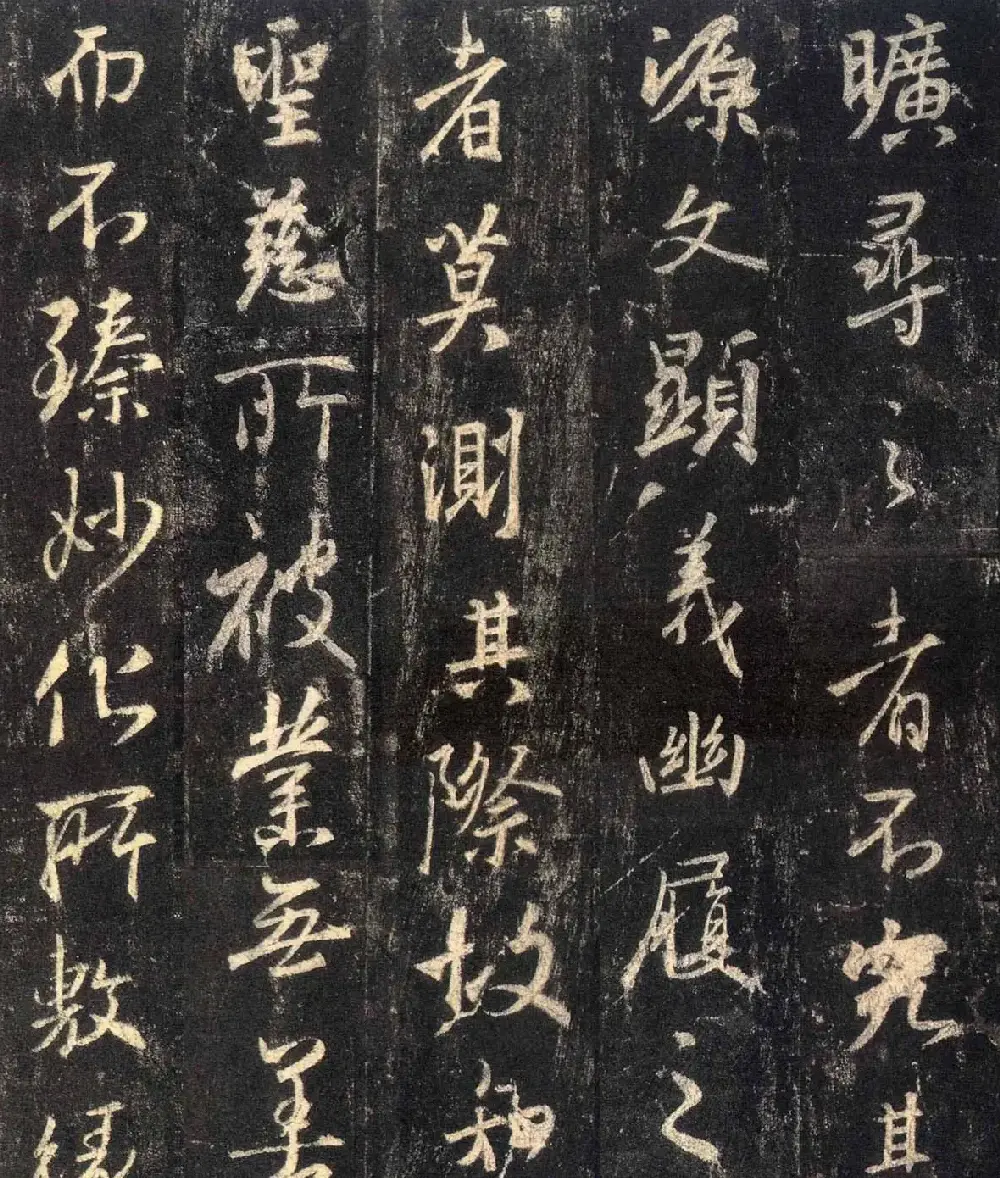 曠尋之者不究其
源文顯義幽履之
者莫測其際故知
聖慈所被業無善
而不臻妙化所敷緣